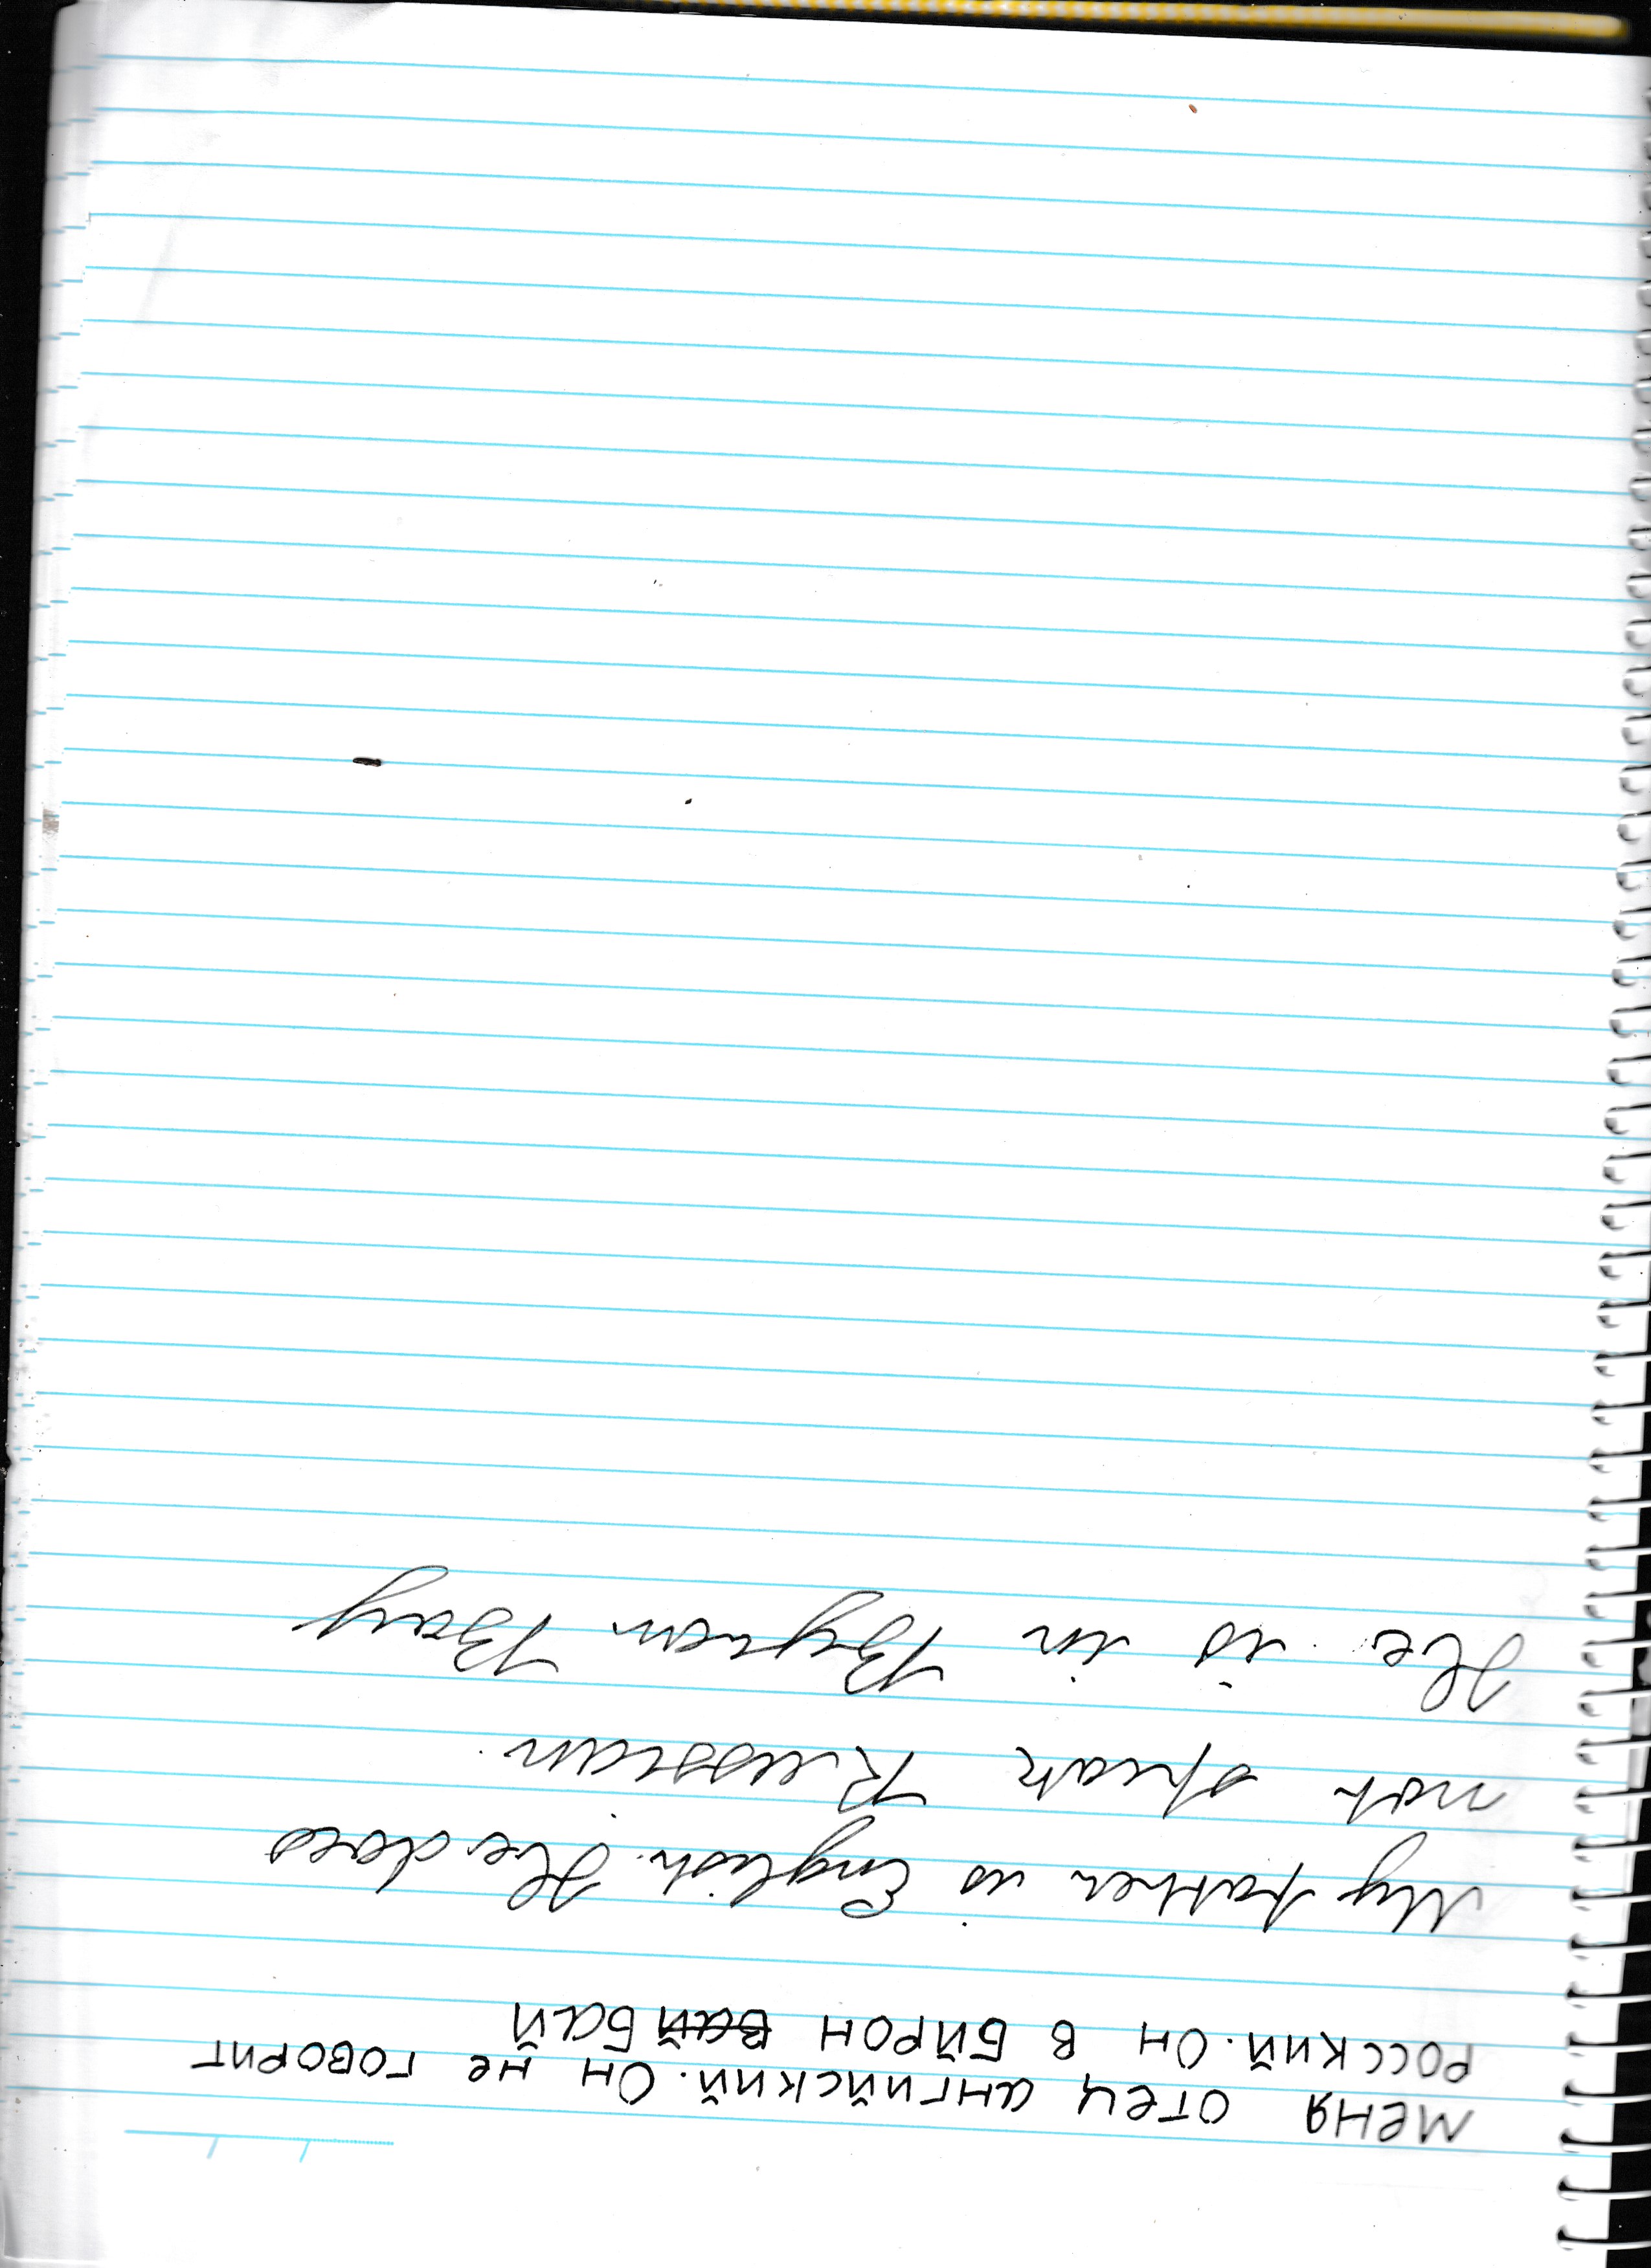 меня отец ангийский. Он не говорит
росский. Он в Бйрон вай Бай
My father is English. He does
not speak Russian.
He is in Byron Bay